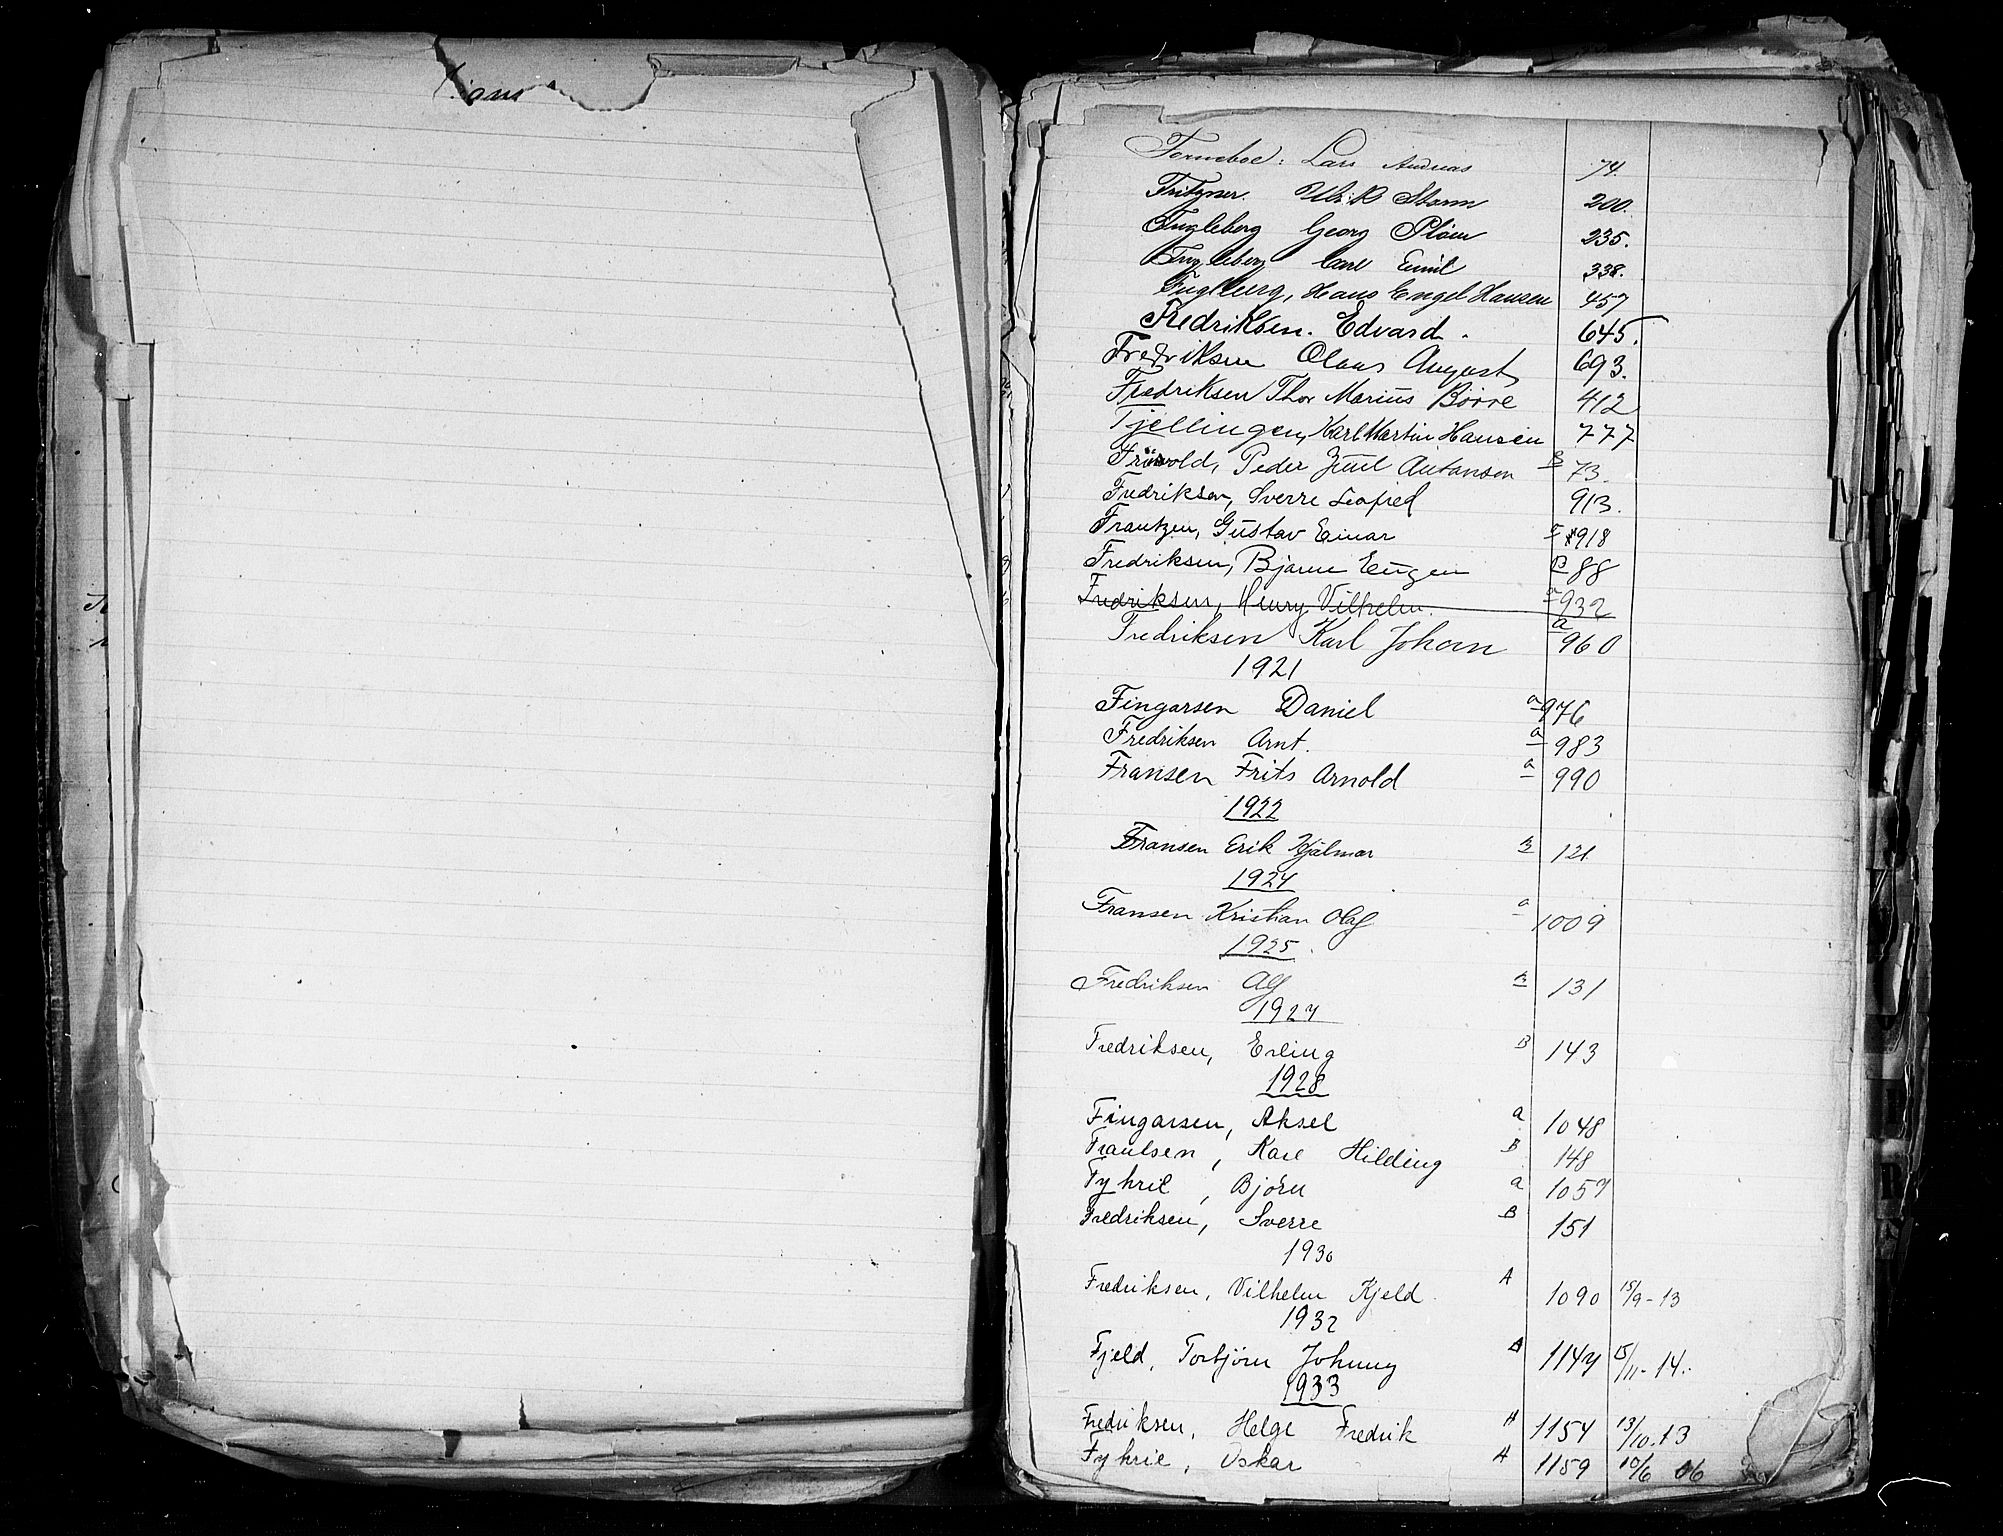 Forneboe: Lars Andreas 74.
Fritzner. Ulrik Storm 200.
Fugleberg Georg Pløen 235.
Fugleberg Carl Emil 338.
Fugleberg, Hans Engel Hansen 457
Fredriksen. Edvard. 645.
Fredriksen Olaus August 693.
Fredriksen Thor Marius Børre 412
Fjellingen, Karl Martin Hansen 777
Frisvold, Peder Emil Antonsen B 73.
Fredriksen, Sverre Leofred 913.
Frantzen, Gustav Einar 918
Fredriksen, Bjarne Eugen B 88
Fredriksen, Henry Vilhelm. a 932
Fredriksen Karl Johan a 960
1921
Fingarsen Daniel a 976
Fredriksen Arnt. a 983
Fransen Frits Arnold a 990
1922
Fransen Erik Hjalmar B 121
1924
Fransen Kristian Olaf a 1009
1925.
Fredriksen Alf B 131
1927
Fredriksen, Erling B 143
1928
Fingarsen, Aksel a 1048
Paulsen, Kare Hilding B 148
Fyhrie, Bjørn a 1057
Fredriksen, Sverre B 151
1930
Fredriksen, Vilhelm Kjeld A 1090 15/9-13
1932
Fjeld, Torbjørn Johnny A 1147 15/11-14.
1933
Fredriksen, Helge Fredrik A 1154 13/10-13
Fyhrie, Oskar A 1159 10/6 06